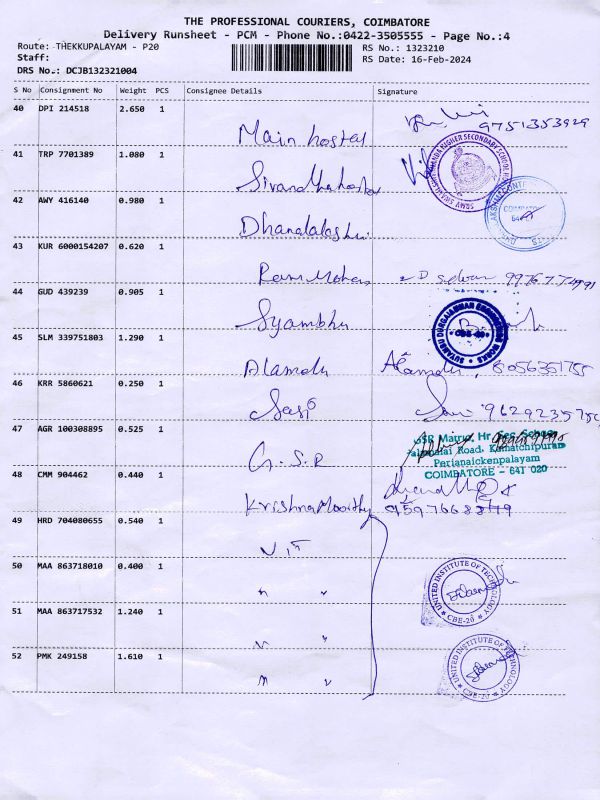 THE PROFESSIONAL COURIERS, COIMBATORE
Delivery Runsheet - PCM - Phone No.:0422-3505555 - Page No.:4
Route: THEKKUPALAYAM - P20 RS No.: 1323210
Staff: RS Date: 16-Feb-2024
DRS No.: DCJB132321004
S No Consignment No Weight PCS Consignee Details Signature
40 DPI 214518 2.650 1
Main hostel 9751353929
41 TRP 7701389 1.080 1
HIGHER SECONDARY SCHOOL
42 AWY 416140 0.980 1
43 KUR 6000154207 0.620 1
Ram Mohan
44 GUD 439239 0.905 1
Syambhu
SUYAMBU DURGAIAMMAN ENGINEERING WORKS
CBE-20
45 SLM 339751803 1.290 1
Alamelu Alamelu, 8056351755
46 KRR 5860621 0.250 1
Sasi
47 AGR 100308895 0.525 1
G.S.R
GSR Matric. Hr. Sec. School
Road, Kamatchipuram
Perianaickenpalayam
COIMBATORE - 641 020
48 CMM 904462 0.440 1
Krishna Moorthy
49 HRD 704080655 0.540 1
50 MAA 863718010 0.400 1
" "
UNITED INSTITUTE OF TECHNOLOGY
CBE-20
51 MAA 863717532 1.240 1
" "
52 PMK 249158 1.610 1
" "
UNITED INSTITUTE OF TECHNOLOGY
CBE-20